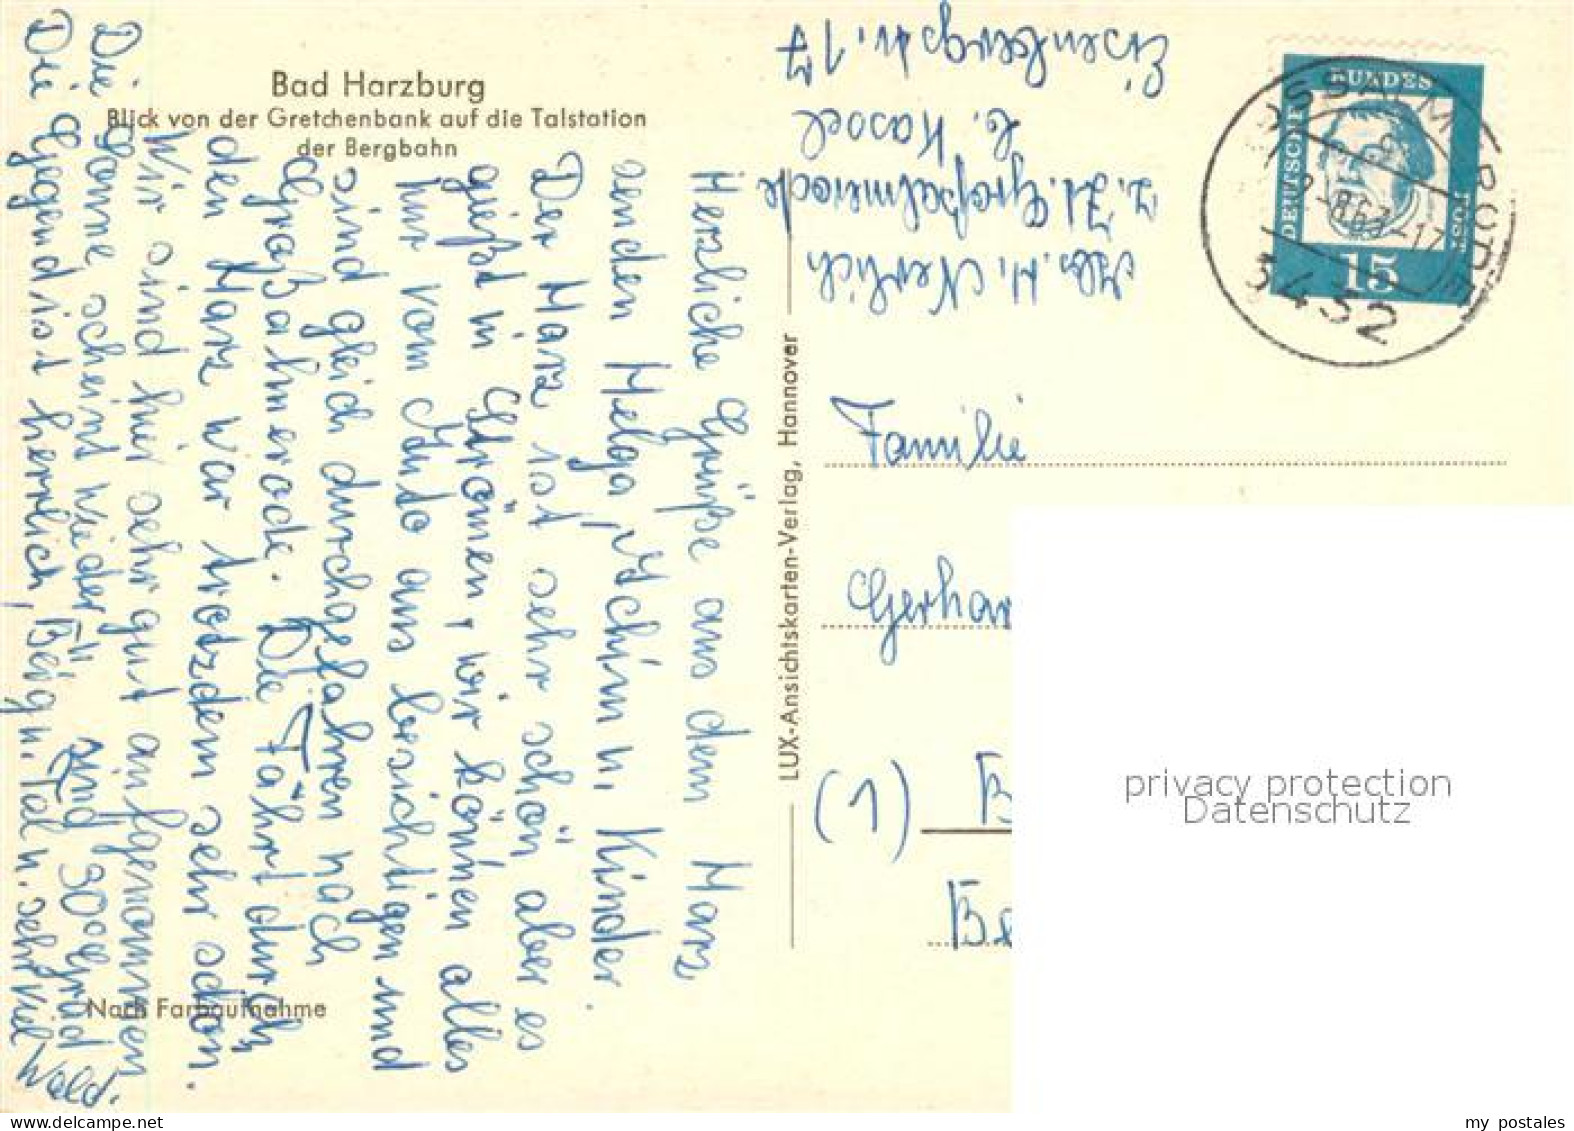 Bad Harzburg
Blick von der Gretchenbank auf die Talstation
der Bergbahn
Herzliche Grüße aus dem Harz
senden Helga, Achim u. Kinder.
Der Harz ist sehr schön aber es
gießt in Strömen, wir können alles
nur vom Auto aus besichtigen und
sind gleich durchgefahren nach
Großalmerode. Die Fahrt durch
den Harz war trotzdem sehr schön.
Wir sind hier sehr gut aufgenommen
Die Sonne scheint wieder, sind 30 Grad
Die Gegend ist herrlich, Berg u. Tal u. sehr viel Wald.
Nach Farbaufnahme
LUX-Ansichtskarten-Verlag, Hannover
Abs. H. Nerlich
z. Zt. Großalmerode
b. Kassel
Eisenbergstr. 17
DEUTSCHE
BUNDES
POST
15
GROSSALMERODE
-8.63-17
3432
Familie
Gerhar
(1) B
Be
privacy protection
Datenschutz
my postales